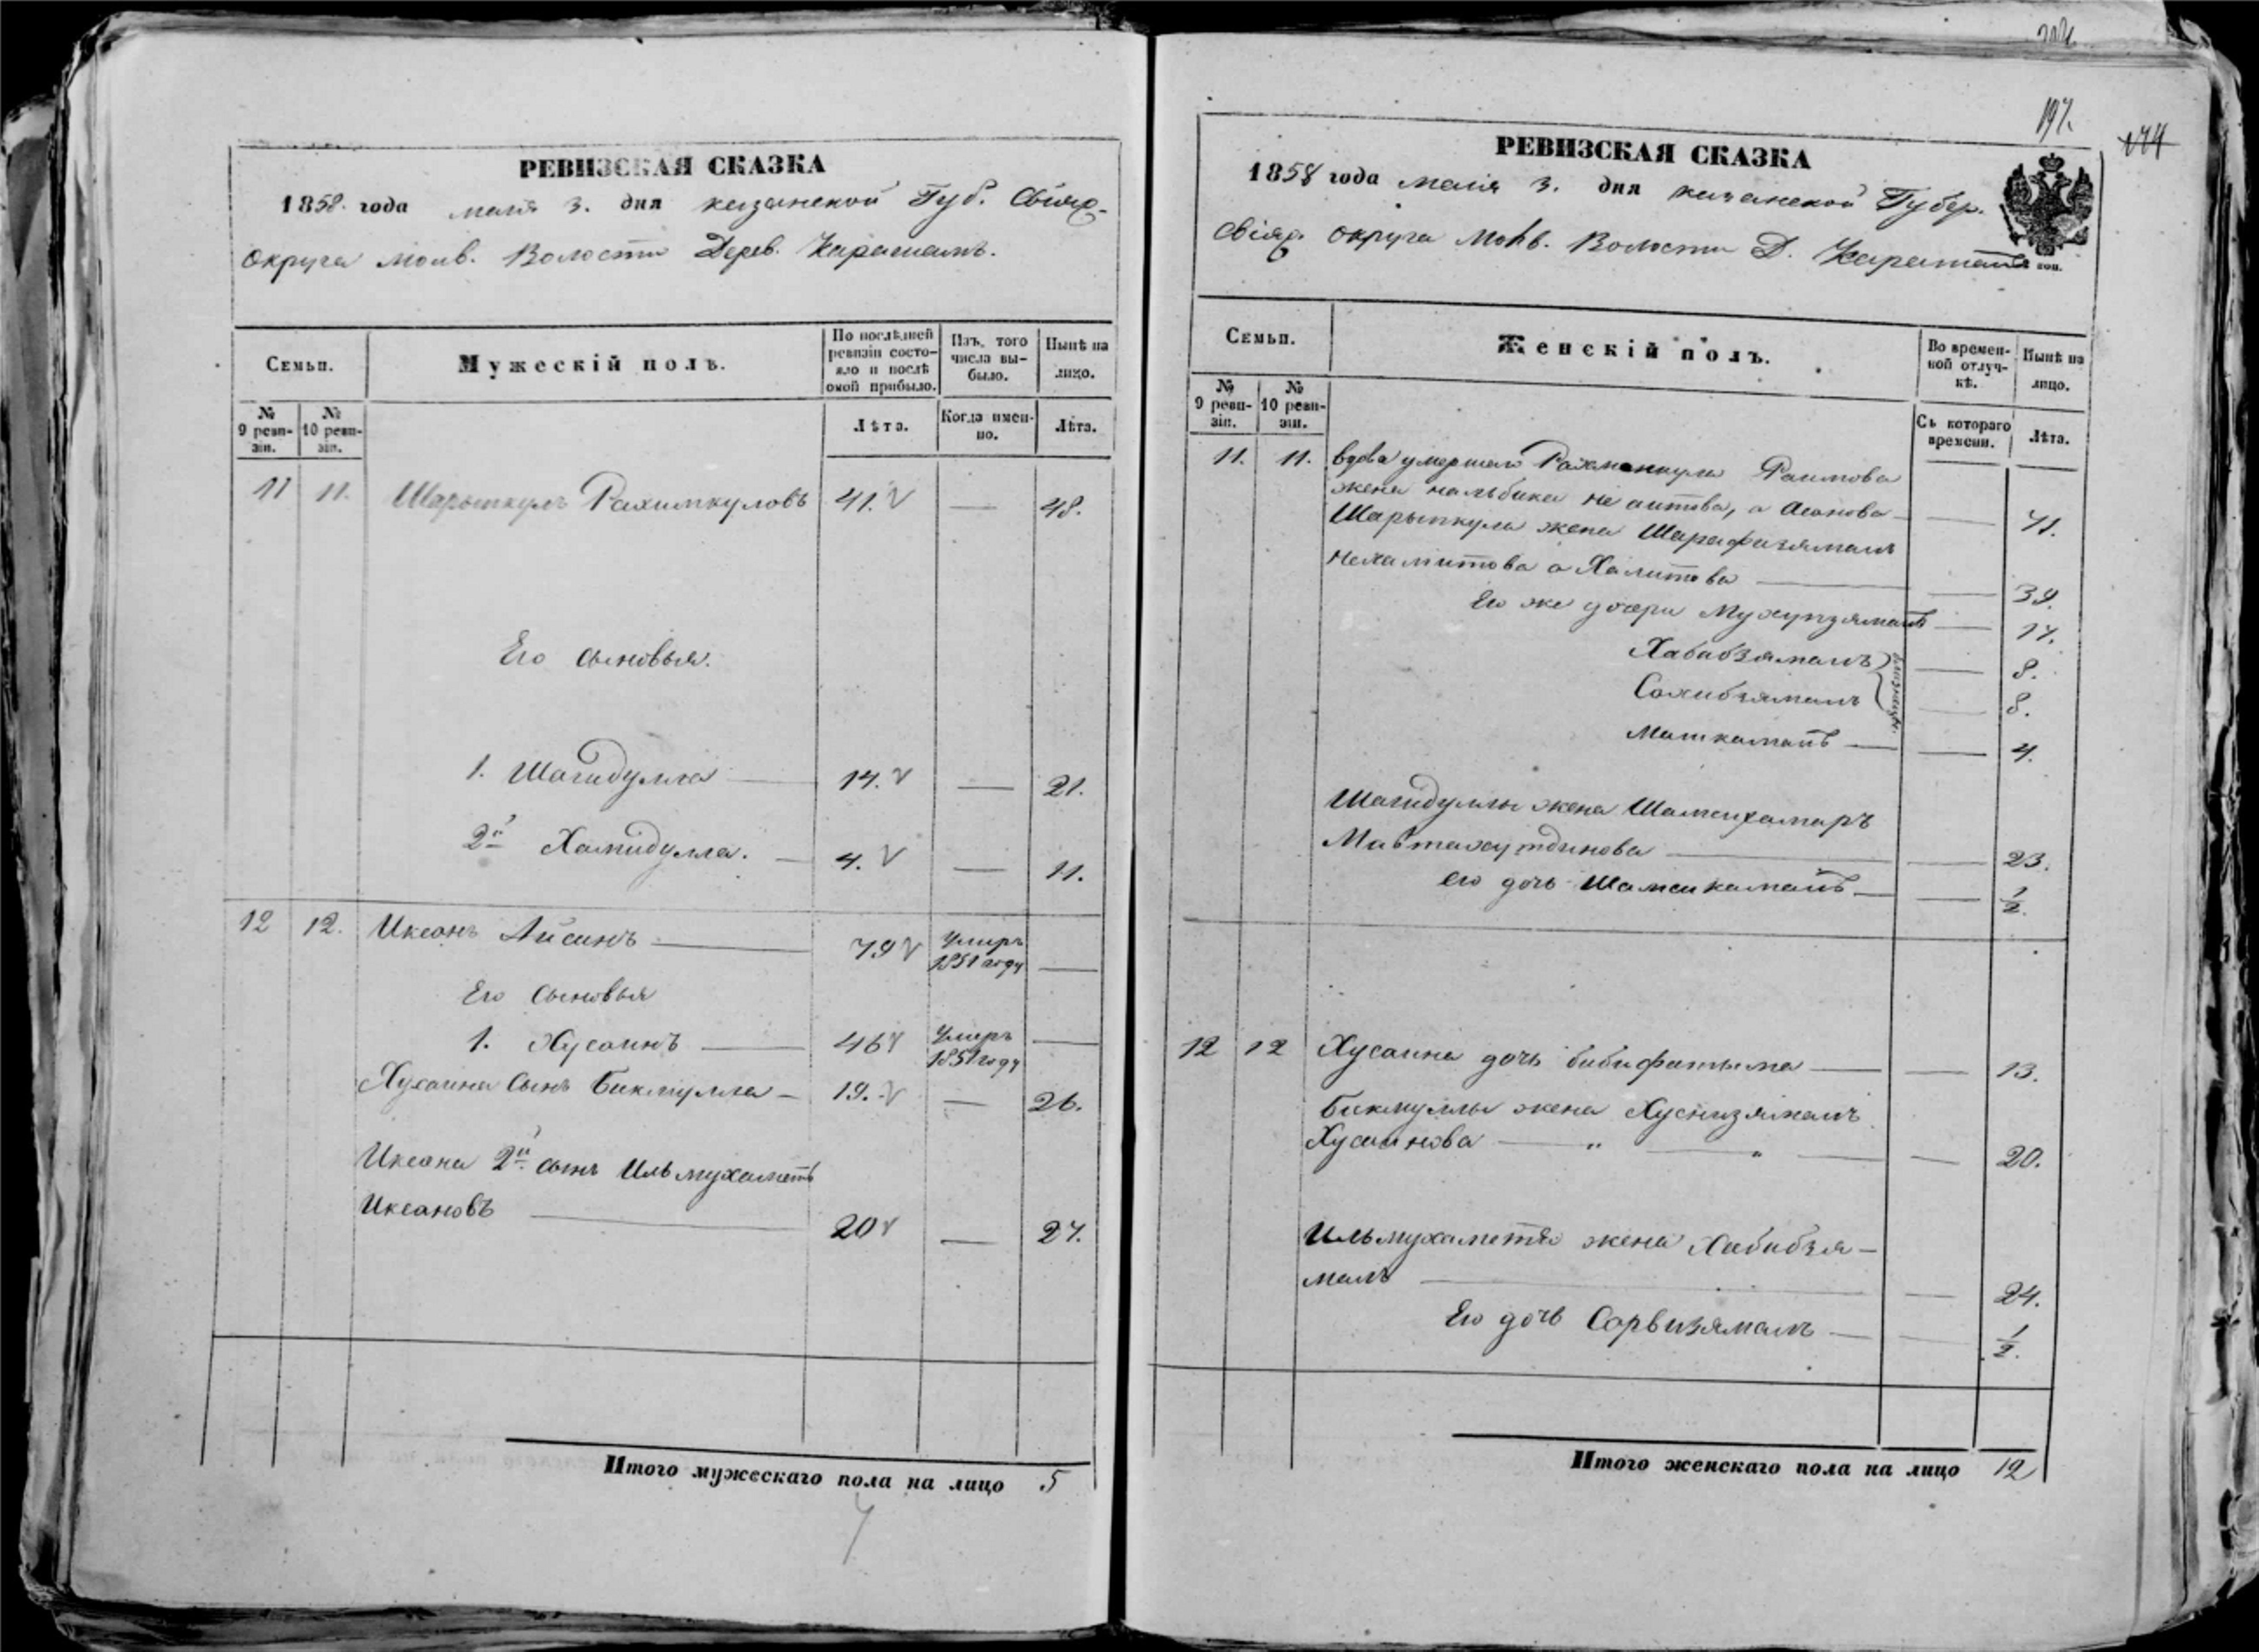 РЕВИЗСКАЯ СКАЗКА
1858. года маія 3. дня казанской Губ. Свіяж-
округа Молв. Волости Дерев.
Семьи.
Мужескій полъ.
По послѣдней ревизіи состояло и послѣ оной прибыло.
Изъ того числа выбыло.
Нынѣ на лицо.
№ 9 ревизіи.
№ 10 ревизіи.
Лѣта.
Когда именно.
Лѣта.
11 11. Шарыпкулъ Рахимкуловъ 41. — 48.
Его сыновья.
1. Шагидулла — 14. — 21.
2й Хамидулла. — 4. — 11.
12 12. Иксанъ Айсинъ — 79 Умеръ 1851 году —
Его сыновья
1. Хусаинъ — 46 Умеръ 1851 году —
Хусаина сынъ Бикмулла — 19. — 26.
Иксана 2й сынъ Ильмухаметъ
Иксановъ — 20 — 27.
Итого мужескаго пола на лицо 5
197.
РЕВИЗСКАЯ СКАЗКА
1858 года маія 3. дня казанской Губер.
Свіяж. округа Молв. Волости Д.
Семьи.
Женскій полъ.
Во временной отлучкѣ.
Нынѣ на лицо.
№ 9 ревизіи.
№ 10 ревизіи.
Съ котораго времени.
Лѣта.
11. 11. вдова умершаго Рахманкула Раимова
жена не аитова, а Асанова — 71.
Шарыпкула жена Шарафзямалъ
нехамитова а Халитова — 39.
Его же дочери — 17.
Хабибзямалъ — 8.
Сахибзямалъ — 8.
— 4.
Шагидуллы жена Шамсикамаръ
— 23.
его дочь — 1/2.
12 12 Хусаина дочь бибифатыма — 13.
Бикмуллы жена Хуснизямалъ
Хусаинова — " — " — 20.
Ильмухаметя жена Хабибзя-
малъ — 24.
Его дочь Сарвизямалъ — 1/2.
Итого женскаго пола на лицо 12